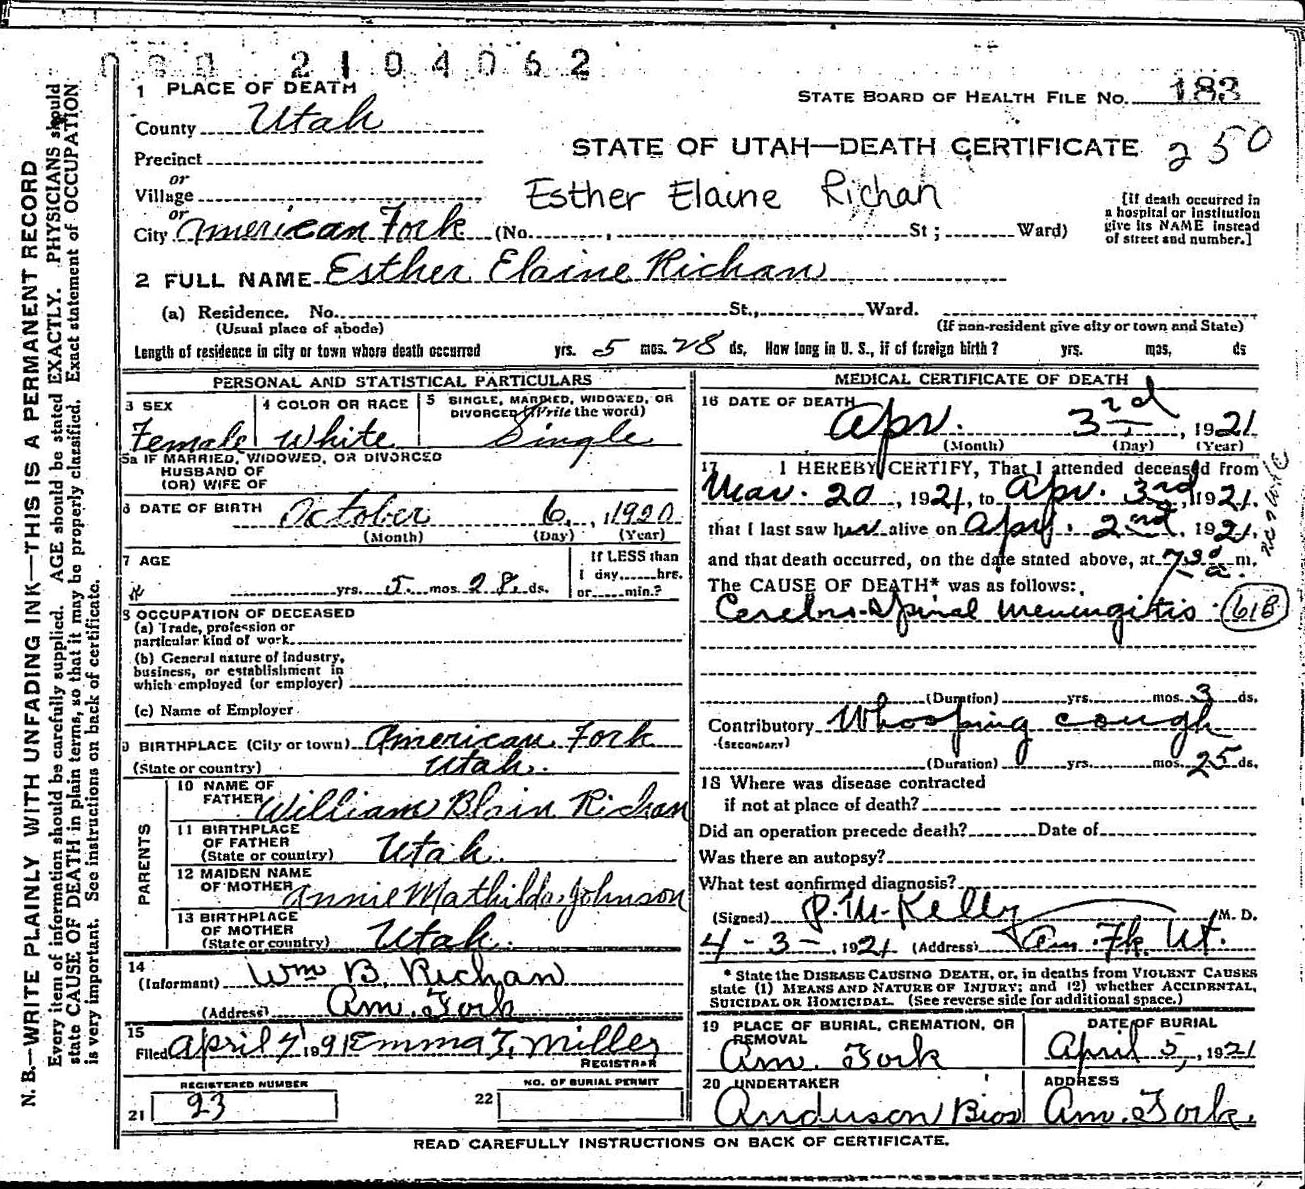 080 2104062
1 PLACE OF DEATH
STATE BOARD OF HEALTH FILE NO. 183
County Utah
STATE OF UTAH—DEATH CERTIFICATE 250
Precinct
or
Village
Esther Elaine Richan
[If death occurred in a hospital or institution give its NAME instead of street and number.]
or
City American Fork (No. , St; Ward)
2 FULL NAME Esther Elaine Richan
(a) Residence. No. St., Ward.
(Usual place of abode) (If non-resident give city or town and State)
Length of residence in city or town where death occurred yrs. 5 mos. 28 ds. How long in U. S., if of foreign birth? yrs. mos. ds
PERSONAL AND STATISTICAL PARTICULARS
3 SEX 4 COLOR OR RACE 5 SINGLE, MARRIED, WIDOWED, OR DIVORCED (Write the word)
Female White Single
5a IF MARRIED, WIDOWED, OR DIVORCED
HUSBAND OF
(OR) WIFE OF
6 DATE OF BIRTH October 6, 1920
(Month) (Day) (Year)
7 AGE If LESS than
1 day......hrs.
yrs. 5 mos. 28 ds. or......min.?
8 OCCUPATION OF DECEASED
(a) Trade, profession or
particular kind of work
(b) General nature of industry,
business, or establishment in
which employed (or employer)
(c) Name of Employer
9 BIRTHPLACE (City or town) American Fork
(State or country) Utah.
PARENTS
10 NAME OF
FATHER William Blain Richan
11 BIRTHPLACE
OF FATHER
(State or country) Utah.
12 MAIDEN NAME
OF MOTHER Annie Mathilda Johnson
13 BIRTHPLACE
OF MOTHER
(State or country) Utah.
14
(Informant) Wm B. Richan
(Address) Am. Fork
15
Filed April 7 191 Emma T. Miller
REGISTRAR
REGISTERED NUMBER NO. OF BURIAL PERMIT
21 93 22
MEDICAL CERTIFICATE OF DEATH
16 DATE OF DEATH
Apr. 3rd, 1921
(Month) (Day) (Year)
17 I HEREBY CERTIFY, That I attended deceased from
Mar. 20, 1921, to Apr. 3rd, 1921.
that I last saw her alive on Apr. 2nd, 1921.
and that death occurred, on the date stated above, at 730 a. m.
The CAUSE OF DEATH* was as follows:
Cerebro-Spinal Meningitis 61B
(Duration) yrs. mos. 3 ds.
Contributory Whooping cough
(SECONDARY)
(Duration) yrs. mos. 25 ds.
18 Where was disease contracted
if not at place of death?
Did an operation precede death? Date of
Was there an autopsy?
What test confirmed diagnosis?
(Signed) P. M. Kelly M. D.
4-3-, 1921 (Address) Am. Fk. Ut.
* State the DISEASE CAUSING DEATH, or, in deaths from VIOLENT CAUSES
state (1) MEANS AND NATURE OF INJURY; and (2) whether ACCIDENTAL,
SUICIDAL OR HOMICIDAL. (See reverse side for additional space.)
19 PLACE OF BURIAL, CREMATION, OR REMOVAL DATE OF BURIAL
Am. Fork April 5, 1921
20 UNDERTAKER ADDRESS
Anderson Bros Am. Fork.
READ CAREFULLY INSTRUCTIONS ON BACK OF CERTIFICATE.
N. B.—WRITE PLAINLY WITH UNFADING INK—THIS IS A PERMANENT RECORD
Every item of information should be carefully supplied. AGE should be stated EXACTLY. PHYSICIANS should
state CAUSE OF DEATH in plain terms, so that it may be properly classified. Exact statement of OCCUPATION
is very important. See instructions on back of certificate.